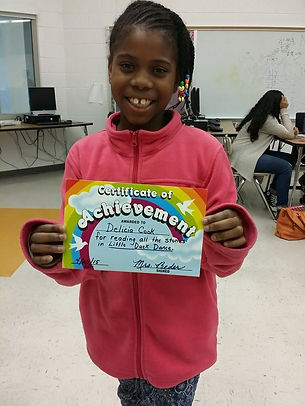 Certificate of
Achievement
AWARDED TO
Delicia Cook
for reading all the stories
in Little Duck Dance.
Mrs.
SIGNED